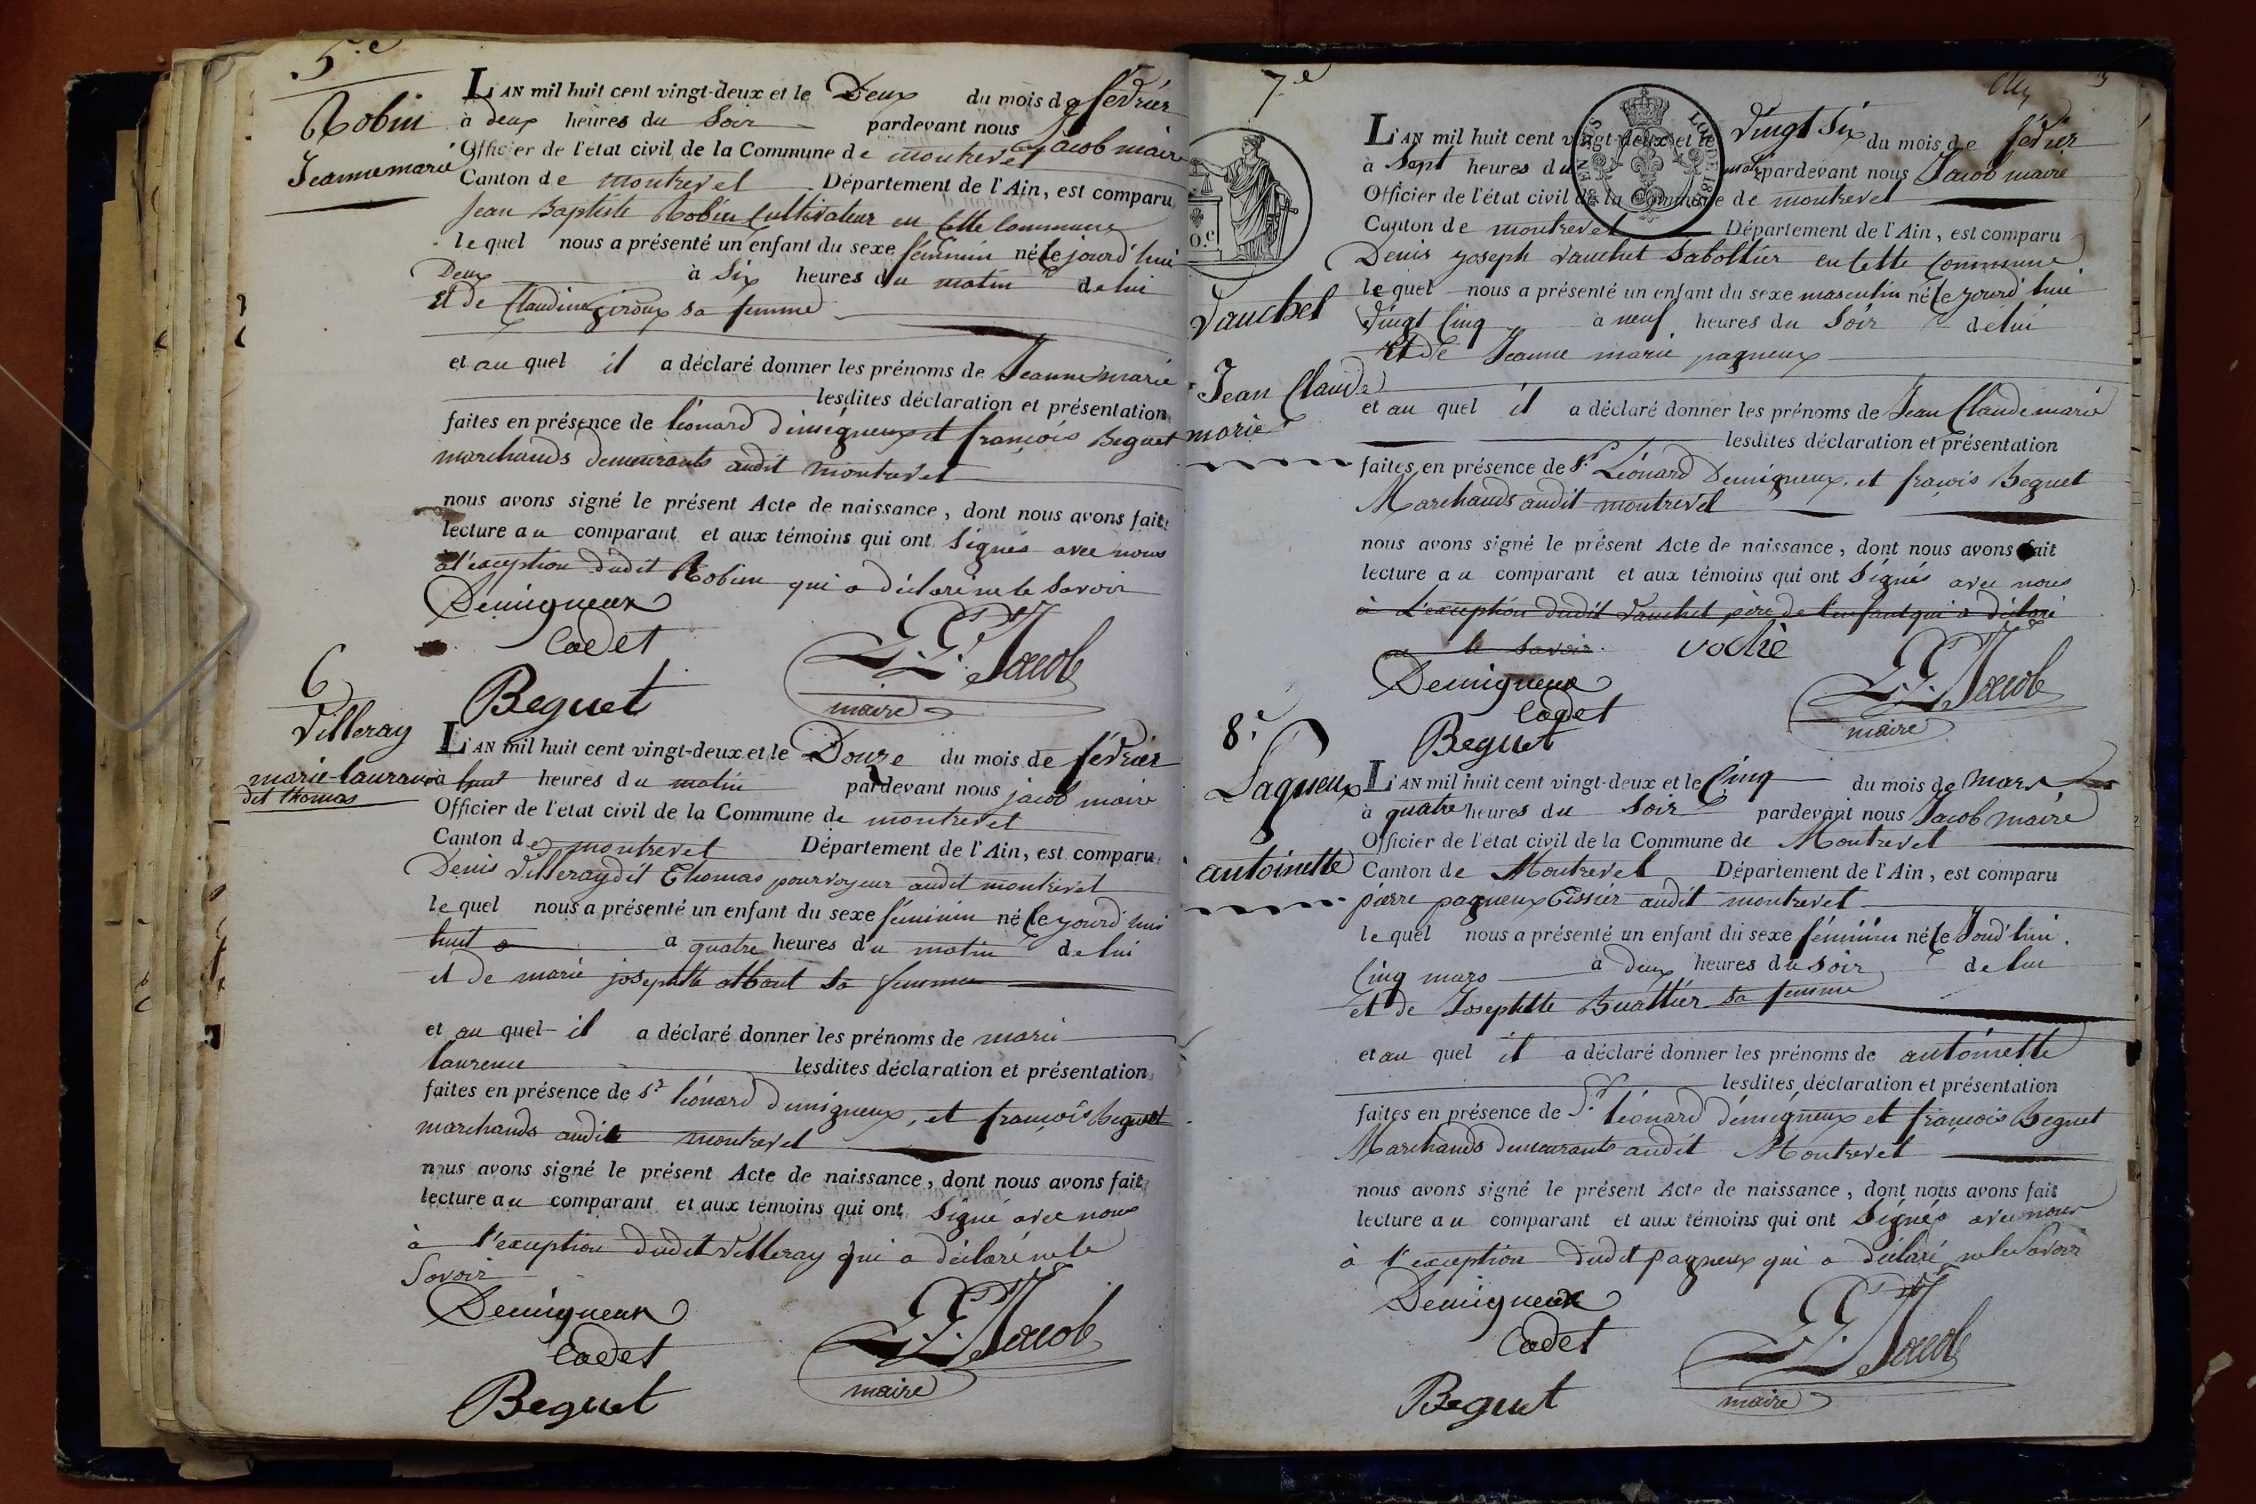 5.e
Robin
Jeanne marie
L'AN mil huit cent vingt-deux et le Deux du mois de février
à deux heures du Soir pardevant nous Jacob maire
Officier de l'état civil de la Commune de montrevel
Canton de montrevel Département de l'Ain, est comparu
Jean Baptiste Robin Cultivateur en Cette Commune
le quel nous a présenté un enfant du sexe féminin né Ce jourd'hui
Deux à Six heures du matin de lui
et de Claudine giroux sa femme
et au quel il a déclaré donner les prénoms de Jeanne marie
lesdites déclaration et présentation
faites en présence de léonard Demigneux et françois Beguet
marchands demeurants audit montrevel
nous avons signé le présent Acte de naissance, dont nous avons fait
lecture au comparant et aux témoins qui ont Signés avec nous
à l'exception dudit Robin qui a déclaré ne le Savoir
Demigneux
Cadet
Beguet
G. G. Jacob
maire
6
Villeray
marie laurence
dit thomas
L'AN mil huit cent vingt-deux et le Douze du mois de février
à huit heures du matin pardevant nous jacob maire
Officier de l'état civil de la Commune de montrevel
Canton de montrevel Département de l'Ain, est comparu
Denis Villeray dit Thomas pourvoyeur audit montrevel
le quel nous a présenté un enfant du sexe féminin né Ce jourd'hui
huit à quatre heures du matin de lui
et de marie josephte sa femme
et au quel il a déclaré donner les prénoms de marie
laurence lesdites déclaration et présentation
faites en présence de Sr léonard demigneux, et françois Beguet
marchands audit montrevel
nous avons signé le présent Acte de naissance, dont nous avons fait
lecture au comparant et aux témoins qui ont Signé avec nous
à l'exception dudit Villeray qui a déclaré ne le
Savoir
Demigneux
Cadet
Beguet
G. G. Jacob
maire
7.e
Vauchet
Jean Claude
marie
L'AN mil huit cent vingt-deux et le Vingt Six du mois de février
à Sept heures du matin pardevant nous Jacob maire
Officier de l'état civil de la Commune de montrevel
Canton de montrevel Département de l'Ain, est comparu
Denis joseph Vauchet Sabottier en Cette Commune
le quel nous a présenté un enfant du sexe masculin né Ce jourd'hui
Vingt Cinq à neuf heures du Soir de lui
et de Jeanne marie pagneux
et au quel il a déclaré donner les prénoms de Jean Claude marie
lesdites déclaration et présentation
faites en présence de Sr Léonard Demigneux, et françois Beguet
Marchands audit montrevel
nous avons signé le présent Acte de naissance, dont nous avons fait
lecture au comparant et aux témoins qui ont Signés avec nous
à L'exception dudit Vauchet père de l'enfant qui a déclaré
ne le savoir. vochè
Demigneux
Cadet
Beguet
G. G. Jacob
maire
8.e
Pagneux
antoinette
L'AN mil huit cent vingt-deux et le Cinq du mois de mars
à quatre heures du Soir pardevant nous Jacob maire
Officier de l'état civil de la Commune de Montrevel
Canton de Montrevel Département de l'Ain, est comparu
pierre pagneux Tissier audit montrevel
le quel nous a présenté un enfant du sexe féminin né Ce Jourd'hui
Cinq mars à deux heures du soir de lui
et de Josephtte Buattier sa femme
et au quel il a déclaré donner les prénoms de antoinette
lesdites déclaration et présentation
faites en présence de Sr léonard démigneux et françois Beguet
Marchands demeurants audit Montrevel
nous avons signé le présent Acte de naissance, dont nous avons fait
lecture au comparant et aux témoins qui ont Signés avec nous
à l'exception dudit pagneux qui a déclaré ne le Savoir
Demigneux
Cadet
Beguet
G. G. Jacob
maire